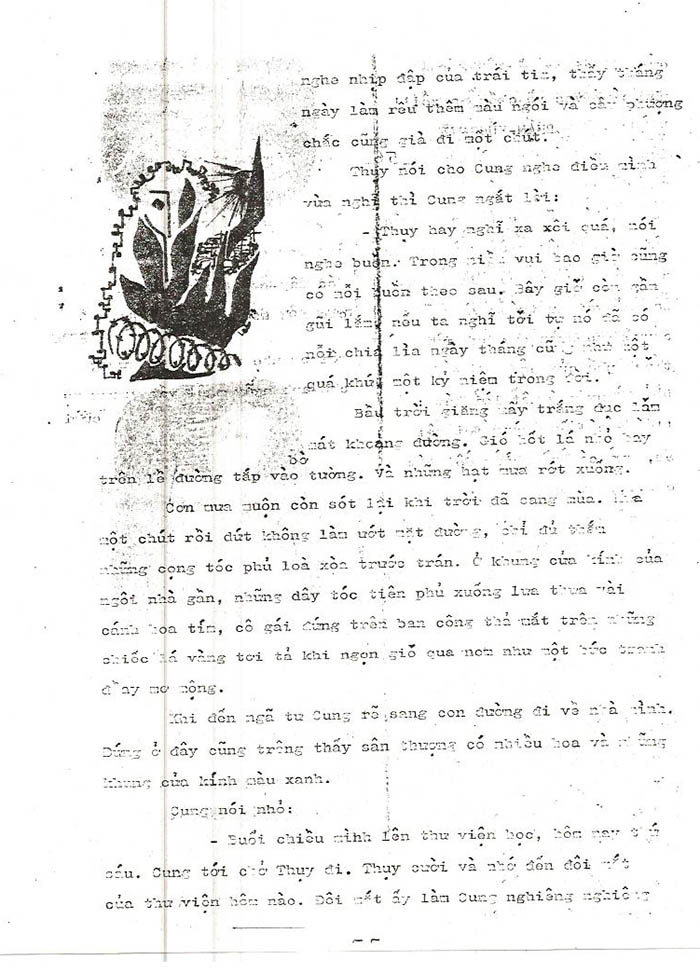 nghe nhịp đập của trái tim, thấy tháng
ngày làm rêu thêm màu ngói và cây phượng
chắc cũng già đi một chút.
Thụy nói cho Cung nghe điều mình
vừa nghĩ thì Cung ngắt lời:
- Thụy hay nghĩ xa xôi quá, nói
nghe buồn. Trong niềm vui bao giờ cũng
có nỗi buồn theo sau. Bây giờ còn gần
gũi lắm, nếu ta nghĩ tới tự nó đã có
nỗi chia lìa ngày tháng cũ như một
quá khứ, một kỷ niệm trong đời.
Bầu trời giăng mây trắng đục làm
mát khoảng đường. Gió hốt lá nhỏ bay
bờ
trên lề đường tấp vào tường. Và những hạt mưa rớt xuống.
Cơn mưa muộn còn sót lại khi trời đã cang mùa.
một chút rồi dứt không làm ướt mặt đường, chỉ đủ thấm
những cọng tóc phủ loà xòa trước trán. Ở khung cửa kính của
ngôi nhà gần, những dây tóc tiên phủ xuống lưa thưa vài
cánh hoa tím, cô gái đứng trên ban công thả mắt trên những
chiếc lá vàng tơi tả khi ngọn gió qua nom như một bức tranh
đầy mơ mộng.
Khi đến ngã tư Cung rẽ sang con đường đi về nhà mình.
Đứng ở đây cũng trông thấy sân thượng có nhiều hoa và những
khung cửa kính màu xanh.
Cung nói nhỏ:
- Buổi chiều mình lên thư viện học, hôm nay thứ
sáu. Cung tới chở Thụy đi. Thụy cười và nhớ đến đôi mắt
của thư viện hôm nào. Đôi mắt ấy làm Cung nghiêng nghiêng